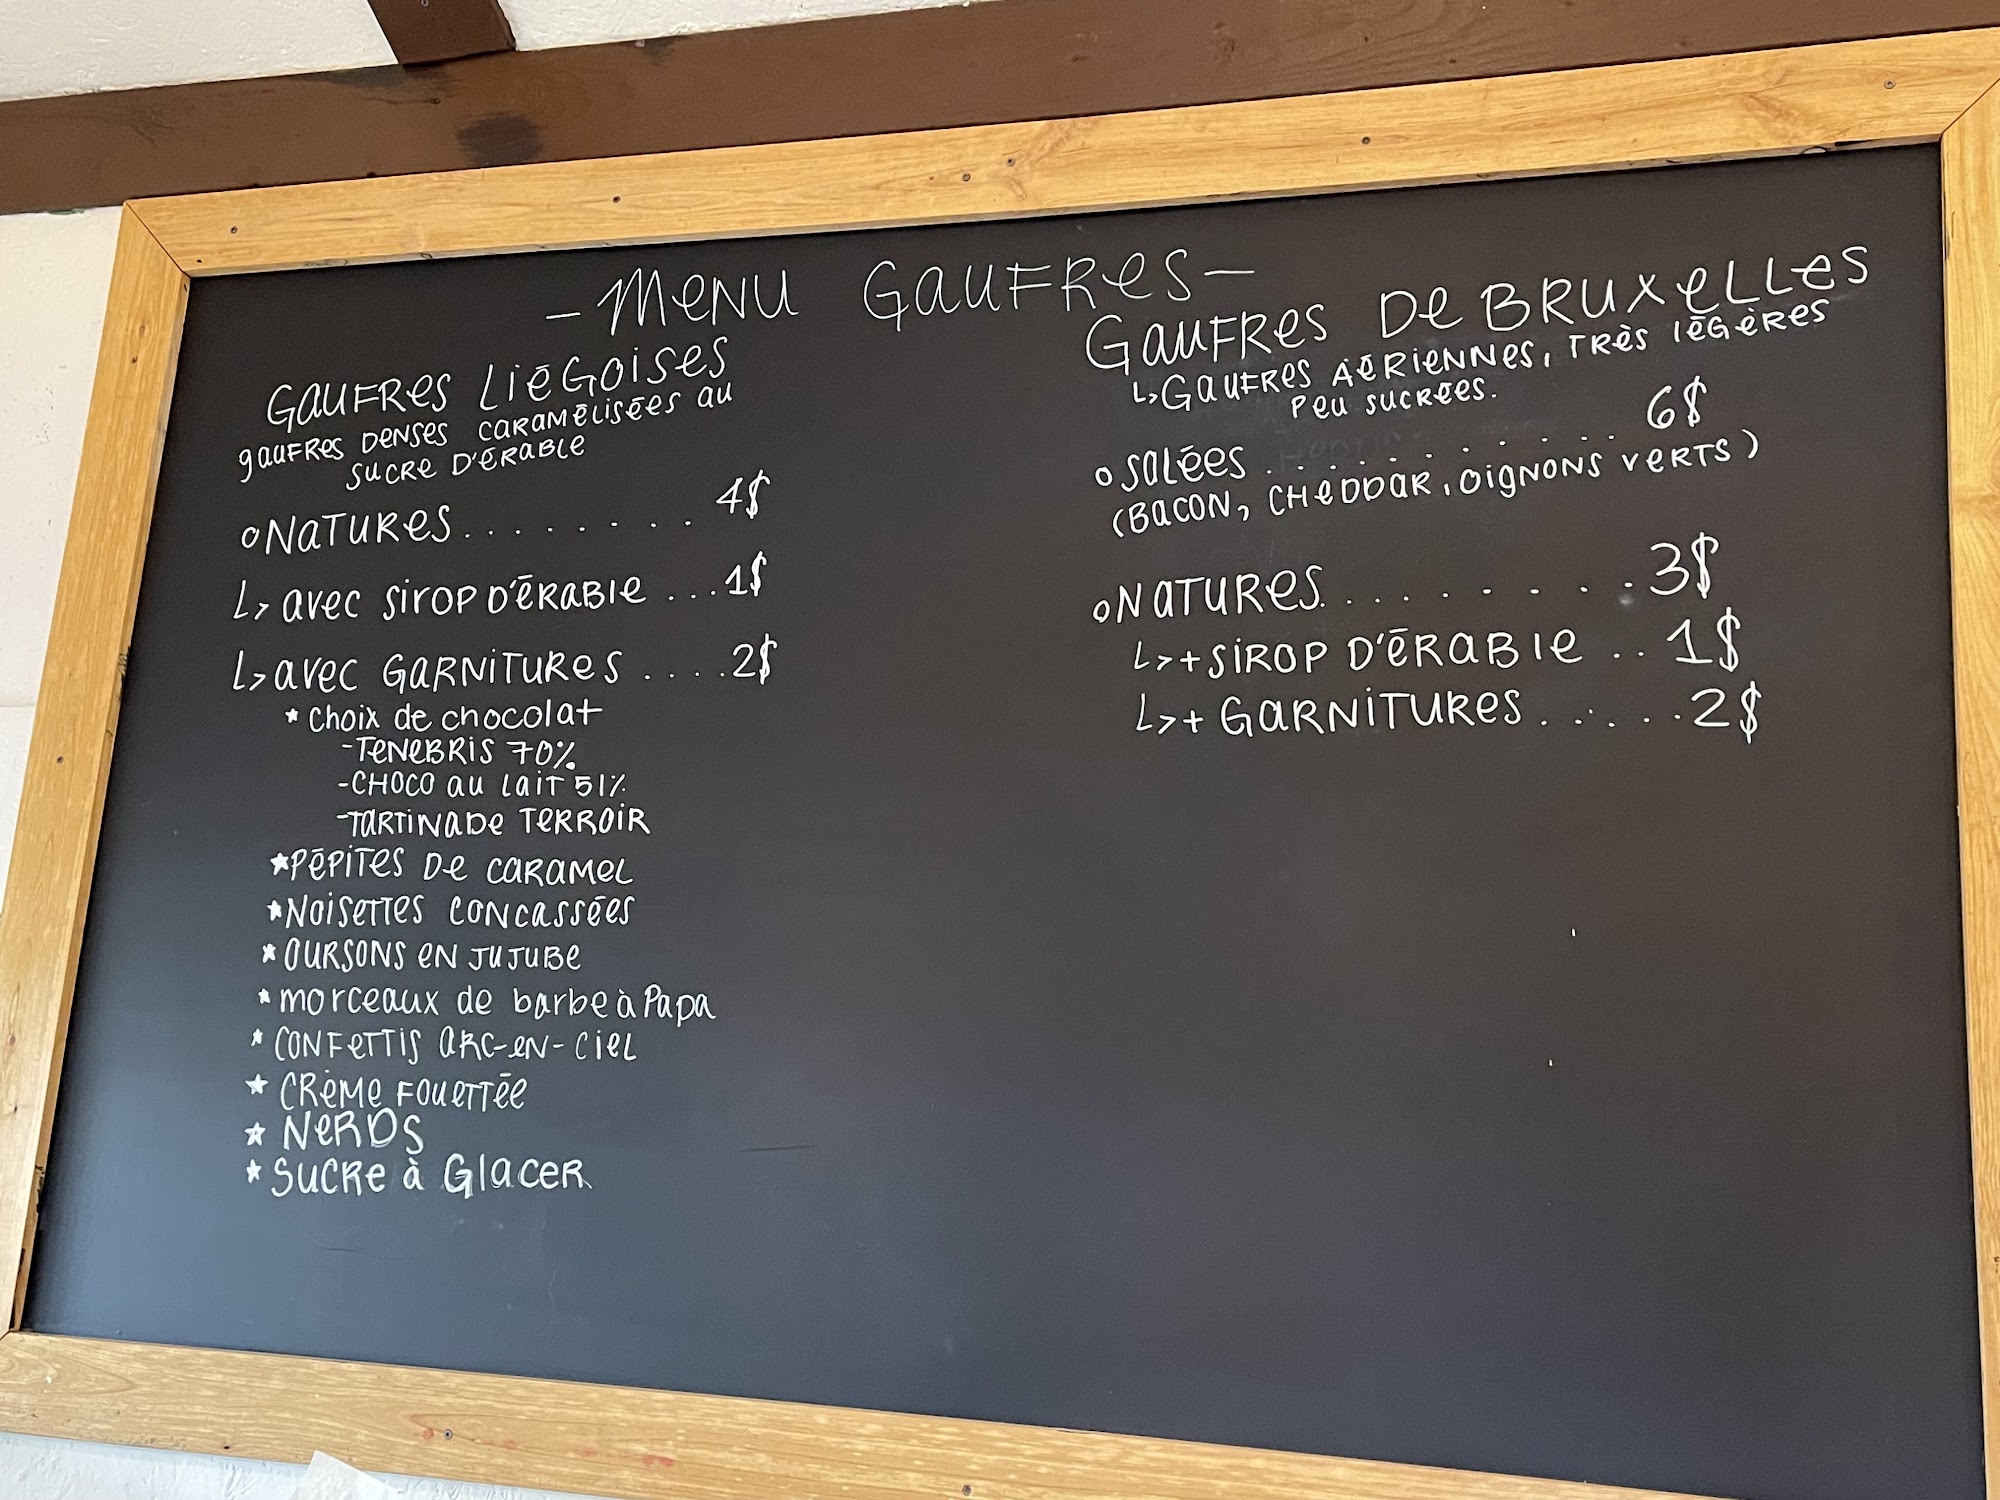 - MENU GAUFRES -
GAUFRES LIÉGOISES
GAUFRES DENSES CARAMÉLISÉES AU
SUCRE D'ÉRABLE
○ NATURES........ 4$
↳ avec SIROP D'ÉRABLE ...1$
↳ avec GARNITURES ....2$
* Choix de chocolat
-TENEBRIS 70%
-CHOCO au LAIT 51%
-TARTINADE TERROIR
*PÉPITES DE CARAMEL
*NOISETTES CONCASSÉES
*OURSONS EN JUJUBE
*morceaux de barbe à Papa
*CONFETTIS ARC-EN-CIEL
* CRÈME FOUETTÉE
* NERDS
* SUCRE à GLACER
GAUFRES DE BRUXELLES
↳GAUFRES AÉRIENNES, TRÈS LÉGÈRES
PEU SUCRÉES.
○ SALÉES.......... 6$
(BACON, CHEDDAR, OIGNONS VERTS)
○ NATURES........3$
↳+ SIROP D'ÉRABLE .. 1$
↳+ GARNITURES.....2$